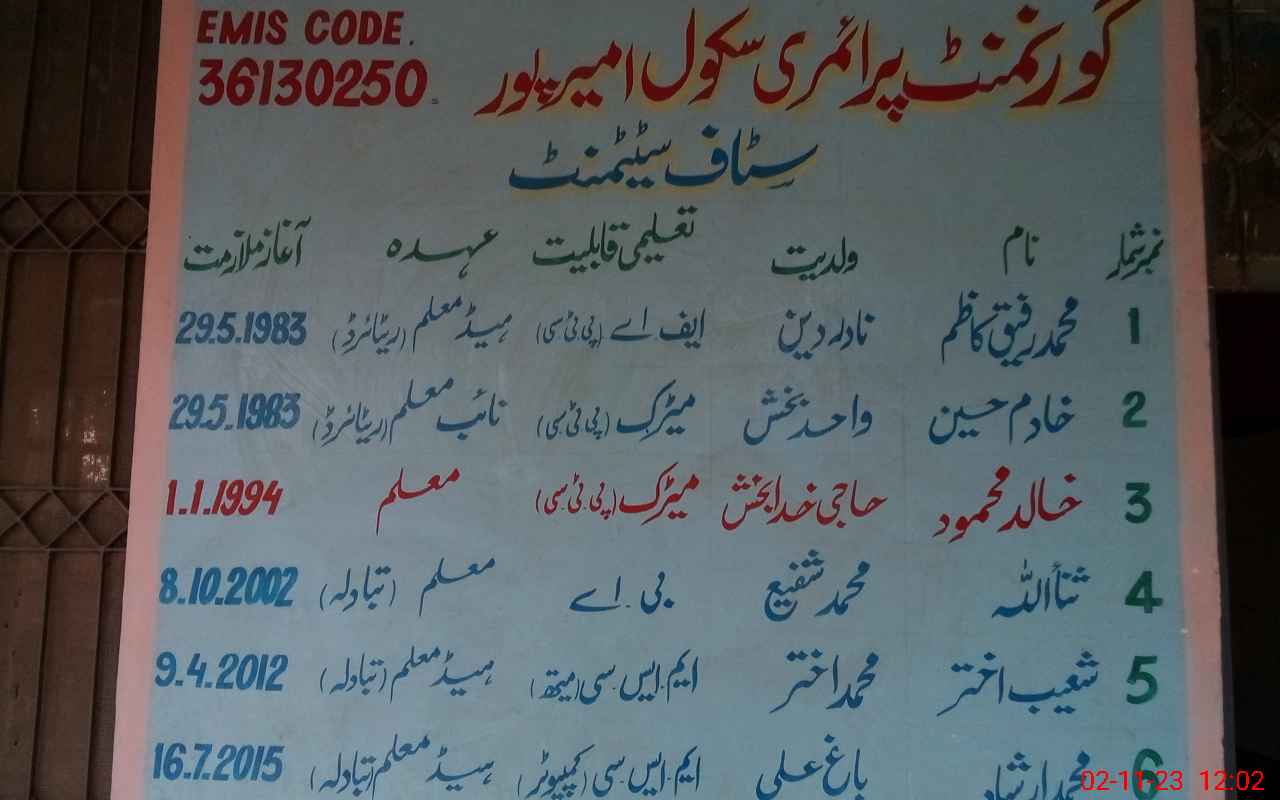 EMIS CODE.
36130250
گورنمنٹ پرائمری سکول امیرپور
سٹاف سٹیٹمنٹ
نمبرشمار نام ولدیت تعلیمی قابلیت عہدہ آغاز ملازمت
1 محمد رفیق کاظم نادلہ دین ایف اے (پی ٹی سی) ہیڈ معلم (ریٹائرڈ) 29.5.1983
2 خادم حسین واحد بخش میٹرک (پی ٹی سی) نائب معلم (ریٹائرڈ) 29.5.1983
3 خالد محمود حاجی خدا بخش میٹرک (پی ٹی سی) معلم 1.1.1994
4 ثنأاللہ محمد شفیع بی اے معلم (تبادلہ) 8.10.2002
5 شعیب اختر محمد اختر ایم ایس سی (میتھ) ہیڈ معلم (تبادلہ) 9.4.2012
6 محمد ارشاد باغ علی ایم ایس سی (کمپیوٹر) ہیڈ معلم (تبادلہ) 16.7.2015
02-11-23 12:02